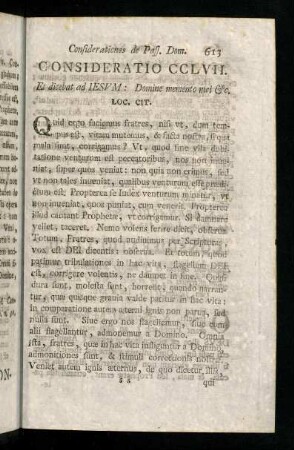 Considerationes de Pass. Dom. 613
CONSIDERATIO CCLVII.
Et dicebat ad IESVM: Domine memento mei &c.
LOC. CIT.
Quid ergo facimus fratres, nisi ut, dum tem-
pus est, vitam mutemus, & facta nostra, si qua
mala sunt, corrigamus? Vt, quod sine ulla dubi-
tatione venturum est peccatoribus, nos non inve-
niat, super quos veniat: non quia non erimus, sed
ut non tales inveniat, qualibus venturum esse praedi-
ctum est. Propterea se Iudex venturum minatur, ut
non inveniat, quos puniat, cum venerit. Propterea
illud cantant Prophetae, ut corrigamur. Si damnare
vellet, taceret. Nemo volens ferire dicit, observa.
Totum, Fratres, quod audiuimus per Scripturas,
vox est DEI dicentis: observa. Et totum quod
patimur tribulationes in hac vita, flagellum DEI
est, corrigere volentis, ne damnet in fine. Quam
dura sunt, molesta sunt, horrent, quando narran-
tur, quae quisque gravia valde patitur in hac vita:
in comparatione autem aeterni ignis non parva, sed
nulla sunt. Sive ergo nos flagellemur, sive cum
alii flagellantur, admonemur a Domino. Omnia
ista, fratres, quae in hac vita infliguntur a Domino,
admonitiones sunt, & stimuli correctionis nostrae.
Veniet autem ignis aeternus, de quo dicetur illis,
qui